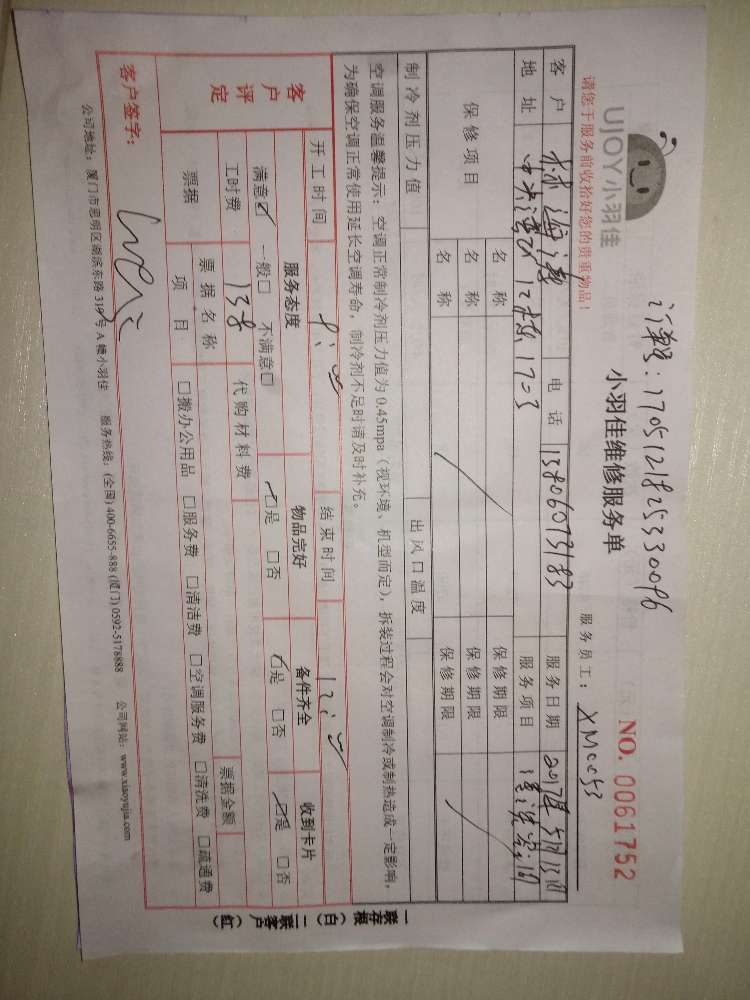 UJOY小羽佳
订单号：1705121825330096
小羽佳维修服务单
NO. 0061752
请您于服务前收拾好您的贵重物品！
服务员工：XM0053
客户 林海涛 电话 13806073183 服务日期 2017年5月13日
地址 中央湾区 12栋1703 服务项目 清洗空调
保修项目 名称 保修期限
名称 保修期限
名称 保修期限
制冷剂压力值 出风口温度
空调服务温馨提示：空调正常制冷剂压力值为0.45mpa（视环境、机型而定），拆装过程会对空调制冷或制热造成一定影响，
为确保空调正常使用延长空调寿命，制冷剂不足时请及时补充。
开工时间 结束时间
客户评定 服务态度 物品完好 备件齐全 收到卡片
满意☑ 一般□ 不满意□ ☑是 □否 ☑是 □否 ☑是 □否
工时费 138 代购材料费 票据金额
票据 票据名称
项目 □搬办公用品 □服务费 □清洁费 □空调服务费 □清洗费 □疏通费
客户签字：
公司地址：厦门市思明区湖滨东路319号A幢小羽佳 服务热线：(全国) 400-6655-888 (厦门) 0592-5178888 公司网站：www.xiaoyujia.com
一联存根（白）二联客户（红）